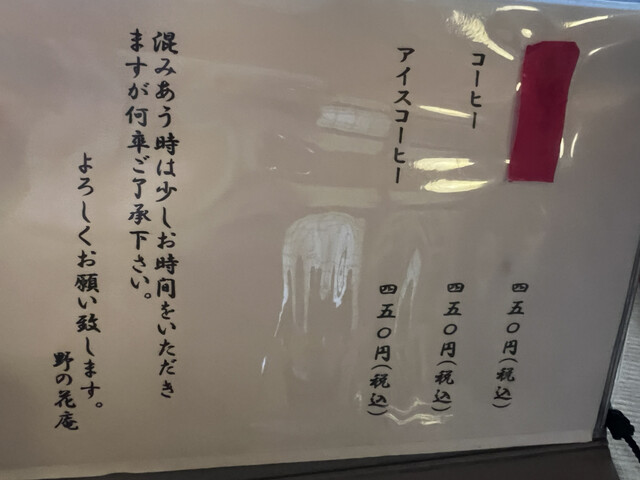 四五〇円(税込)
コーヒー 四五〇円(税込)
アイスコーヒー 四五〇円(税込)
混みあう時は少しお時間をいただき
ますが何卒ご了承下さい。
よろしくお願い致します。
野の花庵